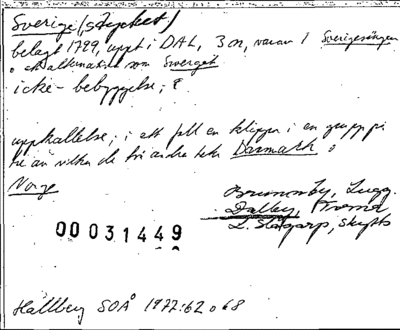 Sverige (stycket)
belagt 1799, uppt i DAL, 3 on, varav 1 Sverigesängen
o ett alternativt som Sverget
icke-bebyggelse;
uppkallelse; i ett fall en klippa i en grupp på
tre av vilka de två andra heta Danmark o
Norge
Brunnby, Lugg.
Dalby,
L. Slågarp, Skytts
00031449
Hallberg SOÅ 1972:62 o 68